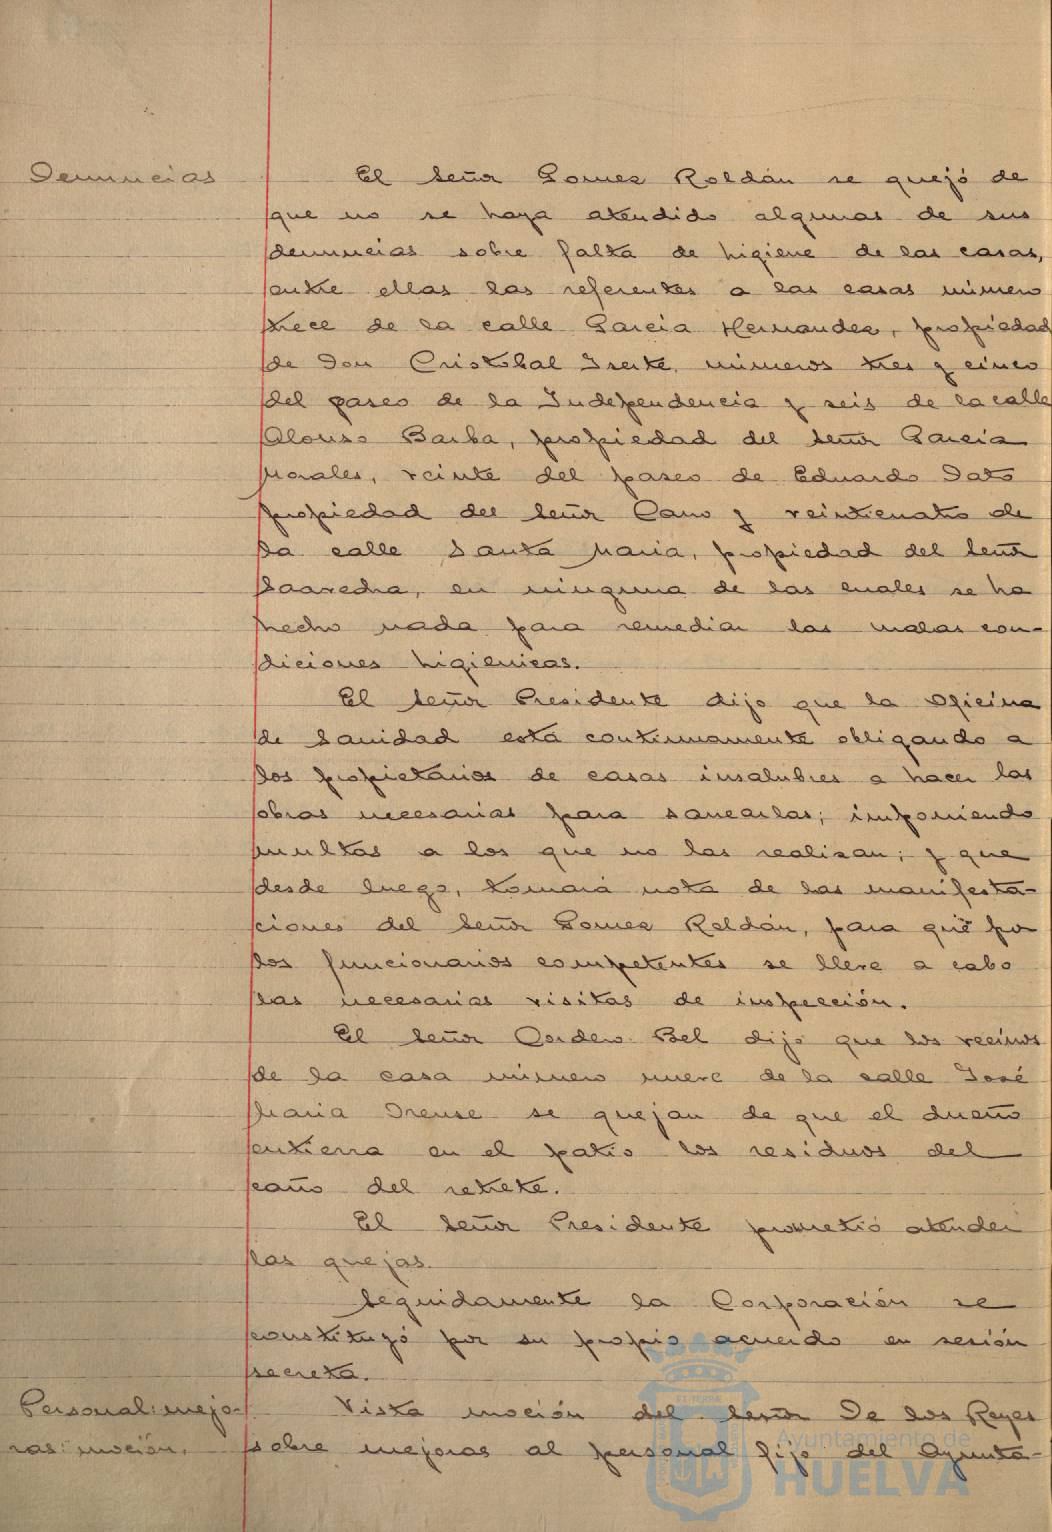 Denuncias
El Señor Gomez Roldán se quejó de
que no se haya atendido algunas de sus
denuncias sobre falta de higiene de las casas,
entre ellas las referentes a las casas número
trece de la calle Garcia Hernandez, propiedad
de Don Cristobal Irerte, números tres y cinco
del paseo de la Independencia y seis de la calle
Alonso Barba, propiedad del Señor Garcia
Morales, veinte del paseo de Eduardo Dato
propiedad del Señor Cano y veinticuatro de
la calle Santa Maria, propiedad del Señor
Saavedra, en ninguna de las cuales se ha
hecho nada para remediar las malas con-
diciones higienicas.
El Señor Presidente dijo que la Oficina
de Sanidad está continuamente obligando a
los propietarios de casas insalubres a hacer las
obras necesarias para sanearlas; imponiendo
multas a los que no las realizan; y que
desde luego, tomará nota de las manifesta-
ciones del Señor Gomez Roldán, para que por
los funcionarios competentes se lleve a cabo
las necesarias visitas de inspección.
El Señor Cordero Bel dijo que los vecinos
de la casa número nueve de la calle José
Maria Orense se quejan de que el dueño
entierra en el patio los residuos del
caño del retrete.
El Señor Presidente prometió atender
las quejas.
Seguidamente la Corporación se
constituyó por su propio acuerdo en sesión
secreta.
Personal: mejo-
ras: moción.
Vista moción del Señor De los Reyes
sobre mejoras al personal fijo del Ayunta-
Ayuntamiento de
HUELVA